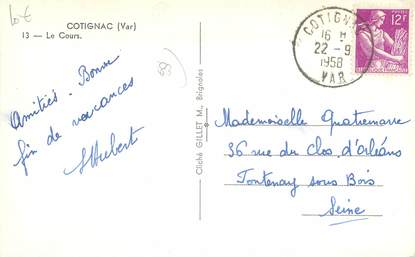 10€
COTIGNAC (Var)
13 — Le Cours.
Amitiés. Bonne
fin de vacances
Hubert
Cliché GILLET M., Brignoles
COTIGNAC
16 H
22 - 9
1958
VAR
POSTES
12F
Mademoiselle Quatremarre
36 rue du Clos d'Orléans
Fontenay sous Bois
Seine